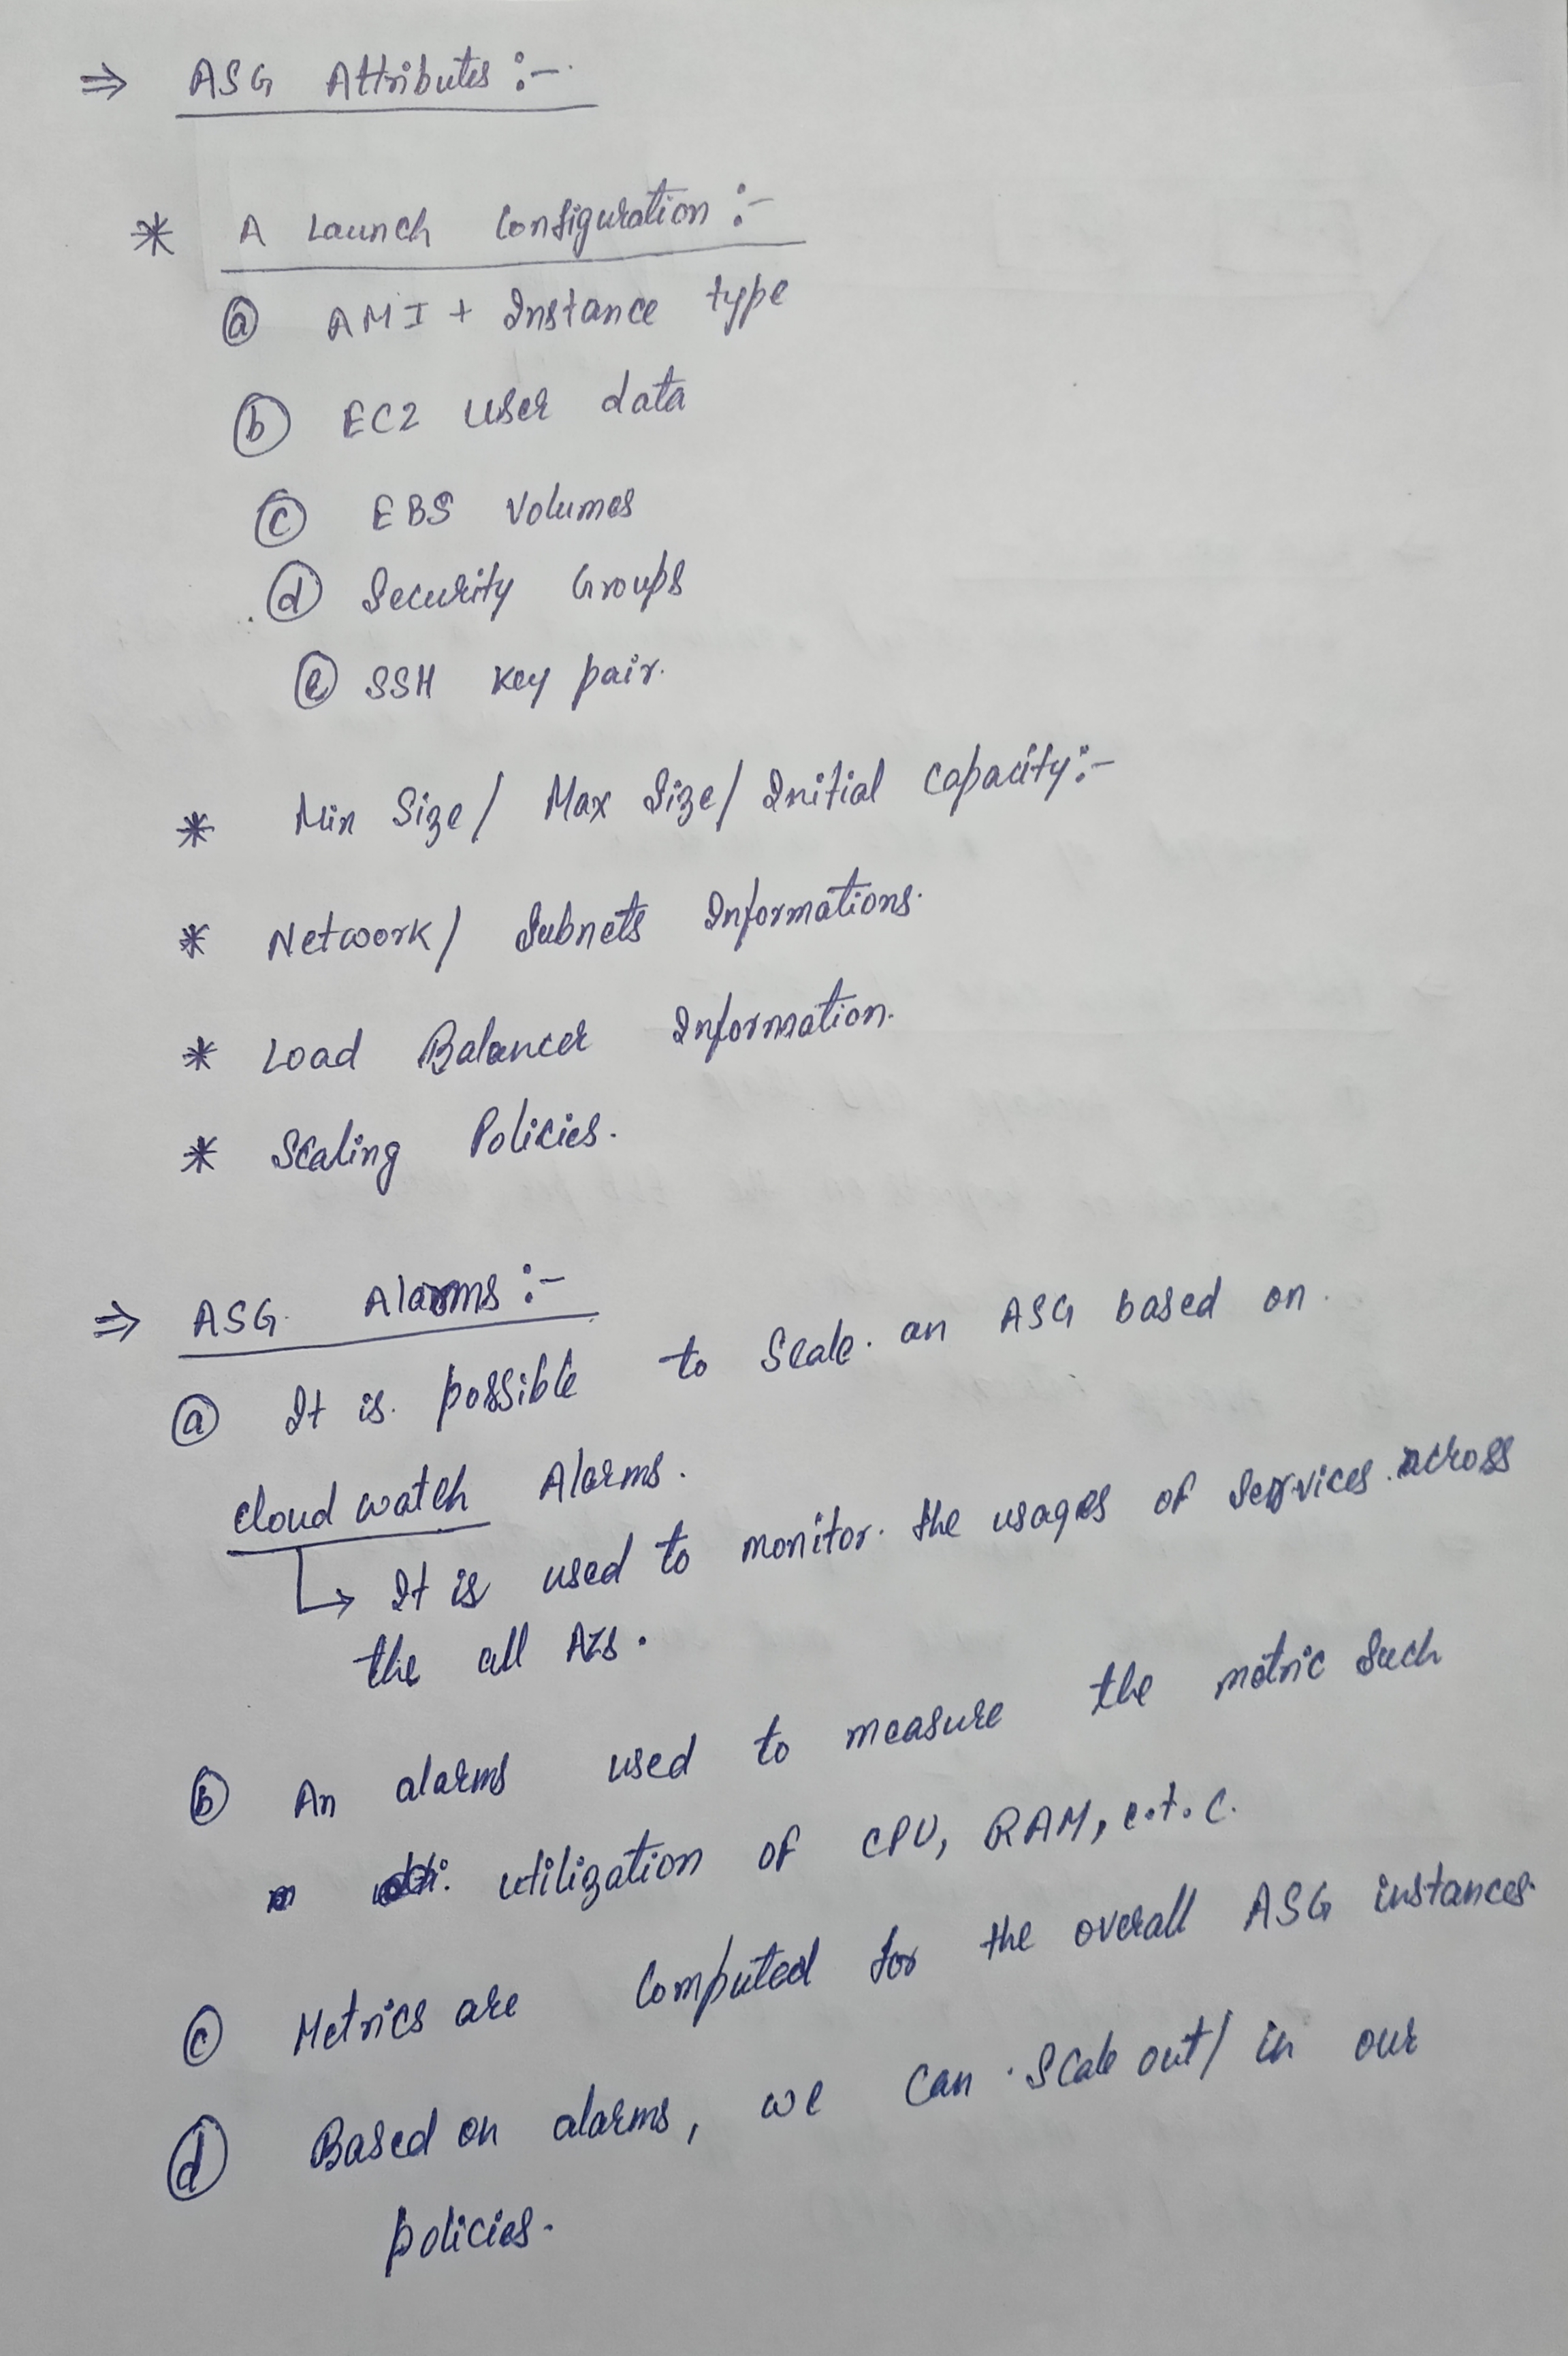 ⇒ ASG Attributes :-
* A Launch Configuration :-
ⓐ AMI + Instance type
ⓑ EC2 User data
ⓒ EBS Volumes
ⓓ Security Groups
ⓔ SSH Key pair.
* Min Size/ Max Size/ Initial Capacity:-
* Network/ Subnets Informations.
* Load Balancer Information.
* Scaling Policies.
⇒ ASG Alarms :-
ⓐ It is possible to Scale an ASG based on
cloud watch Alarms.
↳ It is used to monitor the usages of Services across
the all AZs.
ⓑ An alarms used to measure the metric Such
utilization of CPU, RAM, e.t.c.
ⓒ Metrics are Computed for the overall ASG instances.
ⓓ Based on alarms, we can Scale out/ in our
policies.